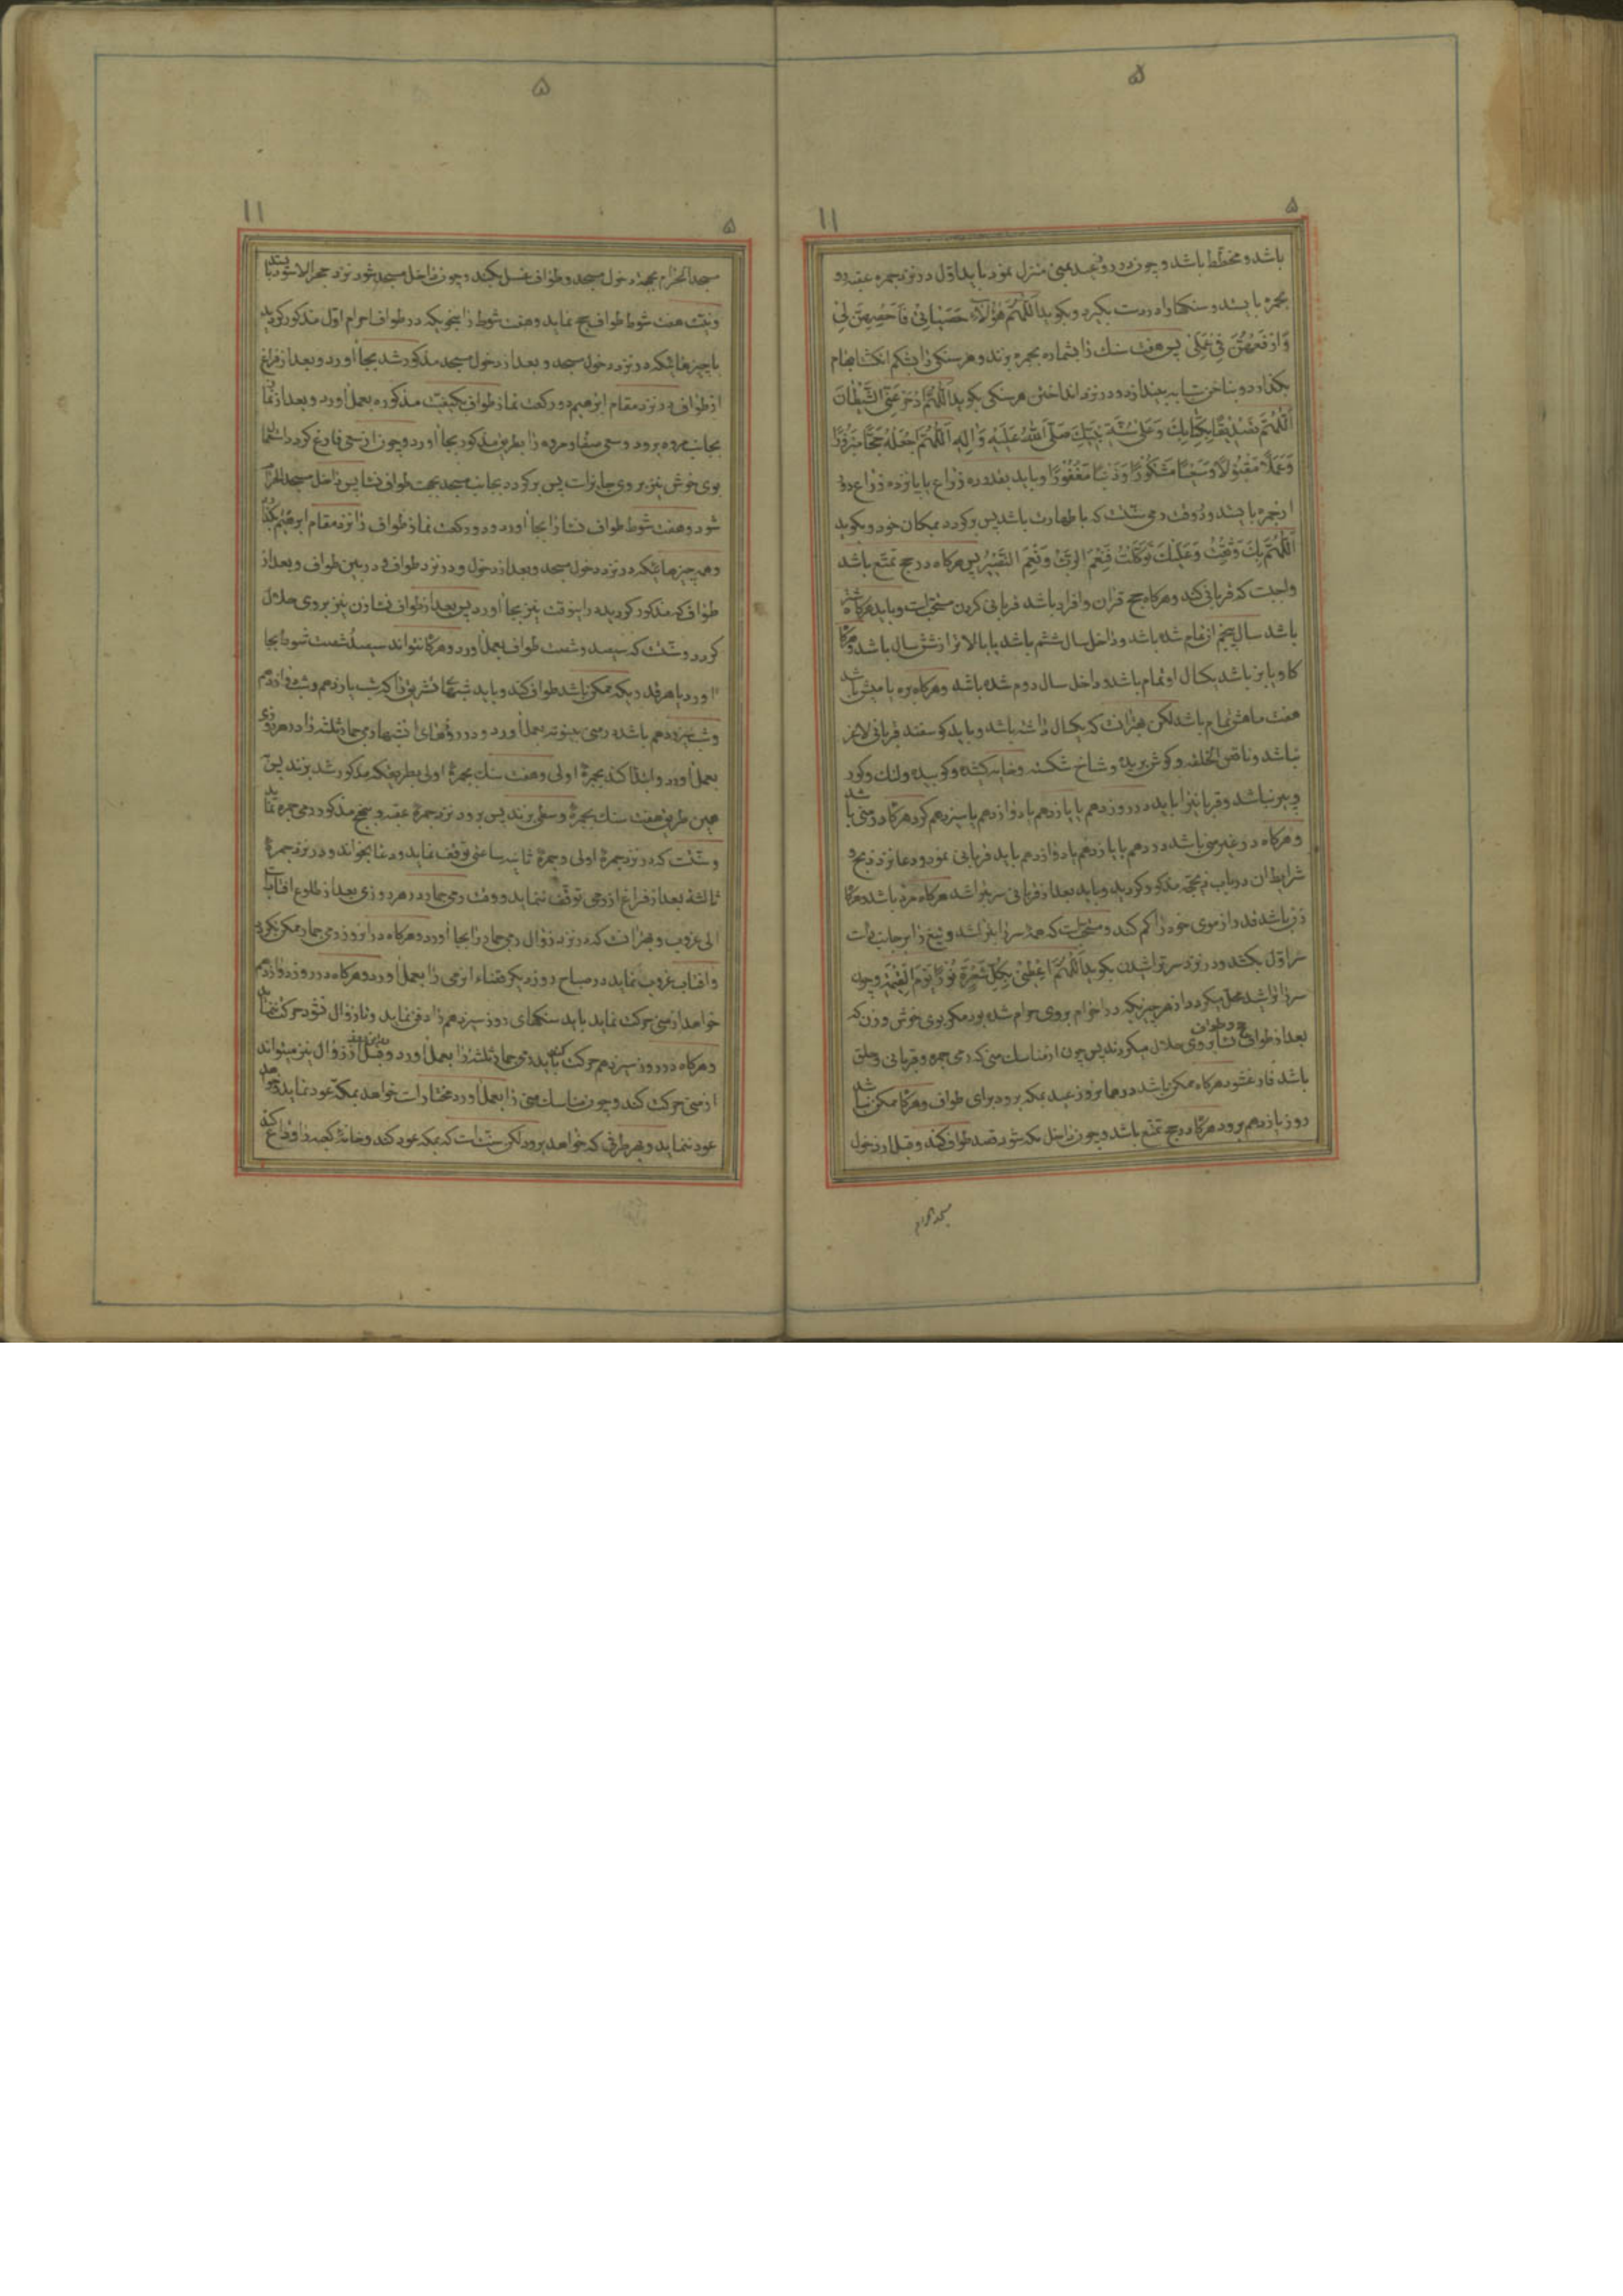 ۵
۵
۱۱
باشد و مخطط باشد و چون در روز عید بمنی منزل نمود باید اول در نزد جمره عقبه رو
بجمره بایستد و سنکها را در دست بکیرد و بکوید اَللّٰهُمَّ هٰؤُلاۤءِ حَصَیٰاتی فَاَحْصِهِنَّ لی
وَارْفَعْهُنَّ فی عَمَلی پس هفت سنک را بشماره بجمره بزند و هر سنکی را بشکم انکشت ابهام
بکذارد و بناخن سبابه بیندازد و در نزد انداختن هر سنکی بکوید اَللّٰهُمَّ ادْحَرْ عَنِّی الشَّیْطٰانَ
اَللّٰهُمَّ تَصْدیقًا بِکِتٰابِکَ وَ عَلیٰ سُنَّةِ نَبِیِّکَ صَلَّی اللّٰهُ عَلَیْهِ وَ اٰلِهِ اَللّٰهُمَّ اجْعَلْهُ حَجًّا مَبْرُورًا
وَ عَمَلًا مَقْبُولًا وَ سَعْیًا مَشْکُورًا وَ ذَنْبًا مَغْفُورًا و باید بقدر ده ذراع یا پانزده ذراع دور
از جمره بایستد و در وقت رمی سنت که با طهارت باشد پس برکردد بمکان خود و بکوید
اَللّٰهُمَّ بِکَ وَثِقْتُ وَ عَلَیْکَ تَوَکَّلْتُ فَنِعْمَ الرَّبُّ وَ نِعْمَ النَّصیرُ پس هرکاه در حج تمتع باشد
واجبست که قربانی کند و هرکاه حج قران و افراد باشد قربانی کردن مستحبست و باید هرکاه شتر
باشد سال پنجم از تمام شده باشد و داخل سال ششم باشد یا بالاتر از شش سال باشد و هرکاه
کاو یا بز باشد یکسال او تمام باشد و داخل سال دوم شده باشد و هرکاه بره یا میش باشد
هفت ماهش تمام باشد لکن بهتر انست که یکسال داشته باشد و باید کوسفند قربانی لاغر
نباشد و ناقص الخلقه و کوش بریده و شاخ شکسته و خایه کشیده و کوبیده و لنک و کور
و پیر نباشد و قربانیرا باید در روز دهم یا یازدهم یا دوازدهم یا سیزدهم کرد هرکاه در منی باشد
و هرکاه در غیر منی باشد در دهم یا یازدهم یا دوازدهم باید قربانی نمود و دعا نزد ذبح و
شرایط ان در باب ذبیحه مذکور کردید و باید بعد از قربانی سر بتراشد هرکاه مرد باشد و هرکاه
زن باشد قدر از موی خود را کم کند و مستحبست که همه سر را بتراشد و تیغ را بر جانب راست
سر اول بکشد و در نزد سر تراشیدن بکوید اَللّٰهُمَّ اَعْطِنی بِکُلِّ شَعْرَةٍ نُورًا یَوْمَ الْقِیٰمَةِ و چون
سر را تراشید محل میکردد از هر چیزیکه در احرام بر وی حرام شده بود مکر بوی خوش و زن که
بعد از طواف حج و طواف نسا بر وی حلال میکردند پس چون از مناسک منی که رمی جمره و قربانی و حلق
باشد فارغ شود هرکاه ممکن باشد در همان روز عید بمکه برود برای طواف و هرکاه ممکن نباشد
روز یازدهم برود هرکاه در حج تمتع باشد و چون داخل مکه شود قصد طواف کند و قبل از دخول
مسجد الحرام
۵
۵
۱۱
مسجد الحرام بجهة دخول مسجد و طواف غسل بکند و چون داخل مسجد شود نزد حجر الاسود بایستد
و نیت هفت شوط طواف حج نماید و هفت شوط را بنحویکه در طواف احرام اول مذکور کردید
با چیزهائیکه در نزد دخول مسجد و بعد از دخول مسجد مذکور شد بجا اورد و بعد از فراغ
از طواف در نزد مقام ابرهیم دو رکعت نماز طواف بکیفیت مذکوره بعمل اورد و بعد از نماز
بجانب مروه برود و سعی صفا و مروه را بطریق مذکور بجا اورد و چون از سعی فارغ کردد استشمام
بوی خوش نیز بر وی جایز است پس برکردد بجانب مسجد بجهت طواف نسا پس داخل مسجد الحرام
شود و هفت شوط طواف نسا را بجا اورد و دو رکعت نماز طواف را نزد مقام ابرهیم بکذارد
و همه چیزهائیکه در نزد دخول مسجد و بعد از دخول و در نزد طواف و در بین طواف و بعد از
طواف که مذکور کردیده در اینوقت نیز بجا اورد پس بعد از طواف نسا زن نیز بر وی حلال
کردد و سنت که سیصد و شصت طواف بعمل اورد و هرکاه نتواند سیصد و شصت شوط بجا
اورد یا هر قدریکه ممکن باشد طواف کند و باید شبهای تشریق را که شب یازدهم و شب دوازدهم
و شب سیزدهم باشد در منی بیتوته بعمل اورد و در روزهای انشبها رمی جمار ثلثه را در هر روزی
بعمل اورد و ابتدا کند بجمرهٔ اولی و هفت سنک بجمرهٔ اولی بطریقیکه مذکور شد بزند پس
همین طریق هفت سنک بجمرهٔ وسطی بزند پس برود نزد جمرهٔ عقبه و بنهج مذکور رمی جمره نماید
و سنت که در نزد جمرهٔ اولی و جمرهٔ ثانیه ساعتی توقف نماید و دعا بخواند و در نزد جمرهٔ
ثالثه بعد از فراغ از رمی توقف ننماید و وقت رمی جمار در هر روزی بعد از طلوع افتابست
الی غروب و بهتر انست که در نزد زوال رمی جمار را بجا اورد و هرکاه در انروز رمی جمار ممکن نکردد
و افتاب غروب نماید در صباح روز دیکر قضاء انرمی را بعمل اورد و هرکاه در روز دوازدهم
خواهد از منی حرکت نماید باید سنکهای روز سیزدهم را دفن نماید و تا زوال نشود حرکت ننماید
و هرکاه در روز سیزدهم حرکت کند باید رمی جمار ثلثه را بعمل اورد و قبل از زوال نیز میتواند
از منی حرکت کند و چون مناسک منی را بعمل اورد مختار است خواهد بمکه عود نماید و خواهد
عود ننماید و بهر طرفی که خواهد برود لکن سنت است که بمکه عود کند و خانهٔ کعبه را وداع کند